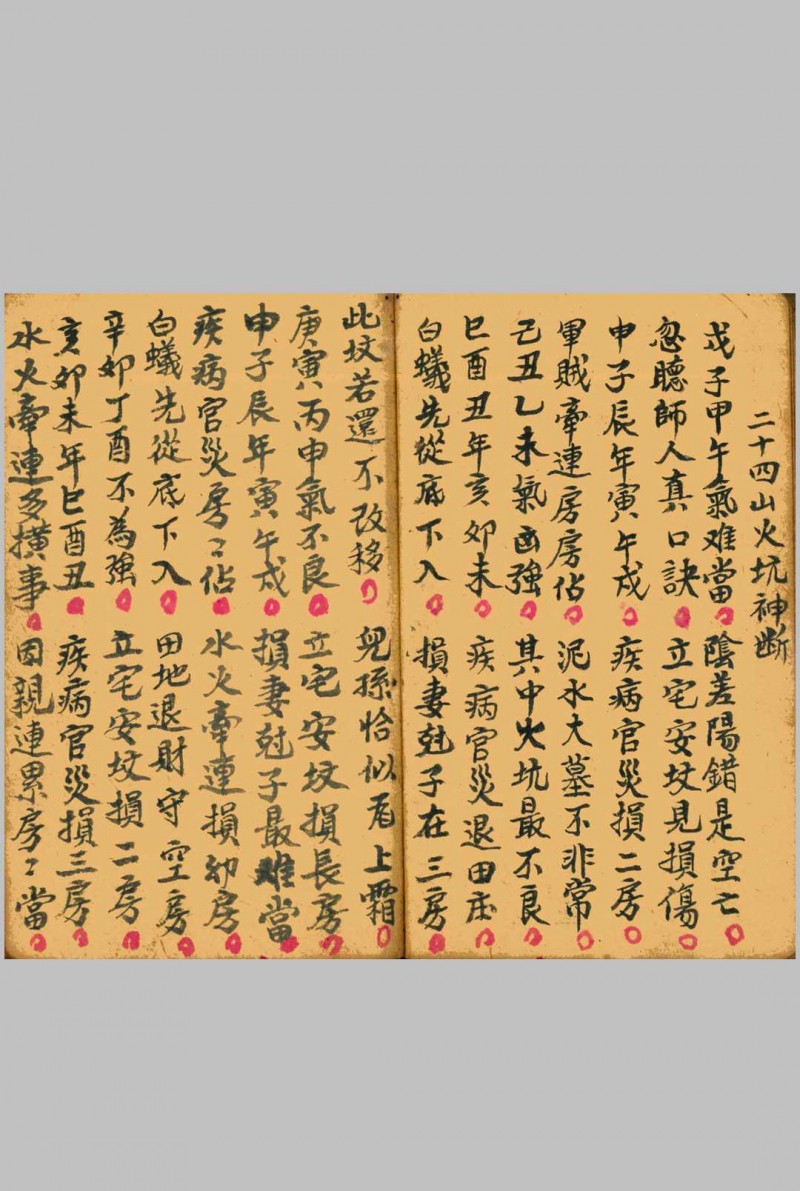 二十四山火坑神断
戊子甲午氣难當 陰差陽錯是空亡
忽聴師人真口訣 立宅安坟見損傷
申子辰年寅午戌 疾病官災損二房
軍賊牽連房房佔 泥水大墓不非常
己丑乙未氣凶強 其中火坑最不良
巳酉丑年亥卯未 疾病官災退田庄
白蟻先從底下入 損妻尅子在三房
此坟若還不改移 兒孫恰似瓦上霜
庚寅丙申氣不良 立宅安坟損長房
申子辰年寅午戌 損妻尅子最难當
疾病官災房〻佔 水火牽連損幼房
白蟻先從底下入 田地退財守空房
辛卯丁酉不為強 立宅安坟損二房
亥卯未年巳酉丑 疾病官災損三房
水火牽連多橫事 因親連累房〻當